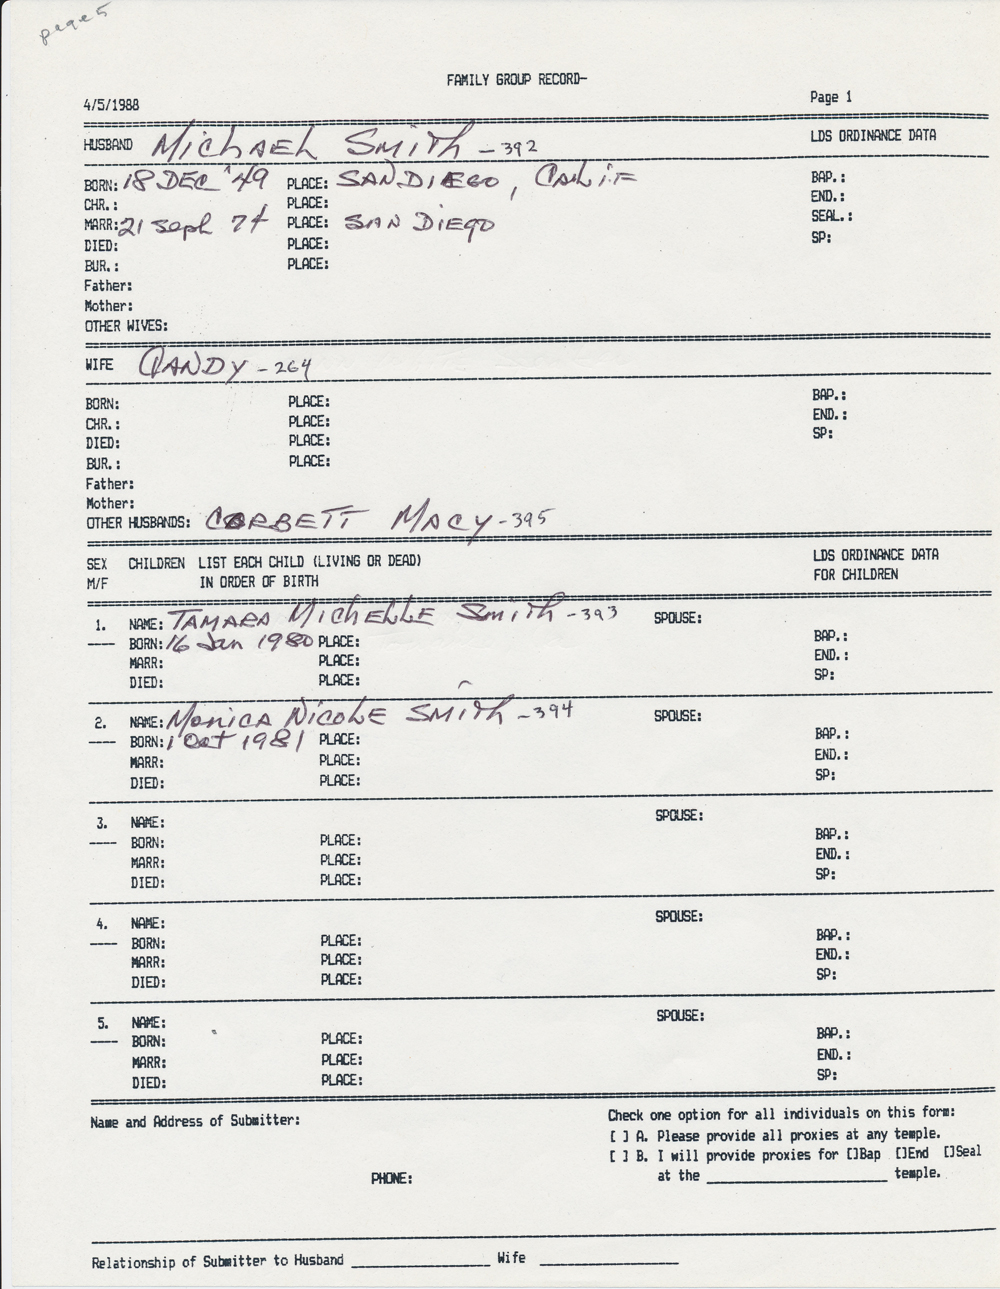 page 5
FAMILY GROUP RECORD-
4/5/1988 Page 1
HUSBAND Michael Smith - 392 LDS ORDINANCE DATA
BORN: 18 DEC '49 PLACE: SAN DIEGO, CALIF BAP.:
CHR.: PLACE: END.:
MARR: 21 Seph 74 PLACE: SAN DIEGO SEAL.:
DIED: PLACE: SP:
BUR.: PLACE:
Father:
Mother:
OTHER WIVES:
WIFE CANDY - 264
BORN: PLACE: BAP.:
CHR.: PLACE: END.:
DIED: PLACE: SP:
BUR.: PLACE:
Father:
Mother:
OTHER HUSBANDS: CORBETT MACY - 395
SEX CHILDREN LIST EACH CHILD (LIVING OR DEAD) LDS ORDINANCE DATA
M/F IN ORDER OF BIRTH FOR CHILDREN
1. NAME: TAMARA MICHELLE Smith - 393 SPOUSE:
---- BORN: 16 Jan 1980 PLACE: BAP.:
MARR: PLACE: END.:
DIED: PLACE: SP:
2. NAME: Monica Nicole SMITH - 394 SPOUSE:
---- BORN: 1 Oct 1981 PLACE: BAP.:
MARR: PLACE: END.:
DIED: PLACE: SP:
3. NAME: SPOUSE:
---- BORN: PLACE: BAP.:
MARR: PLACE: END.:
DIED: PLACE: SP:
4. NAME: SPOUSE:
---- BORN: PLACE: BAP.:
MARR: PLACE: END.:
DIED: PLACE: SP:
5. NAME: SPOUSE:
---- BORN: PLACE: BAP.:
MARR: PLACE: END.:
DIED: PLACE: SP:
Name and Address of Submitter: Check one option for all individuals on this form:
[ ] A. Please provide all proxies at any temple.
[ ] B. I will provide proxies for []Bap []End []Seal
PHONE: at the ____________________ temple.
Relationship of Submitter to Husband _______________ Wife _______________